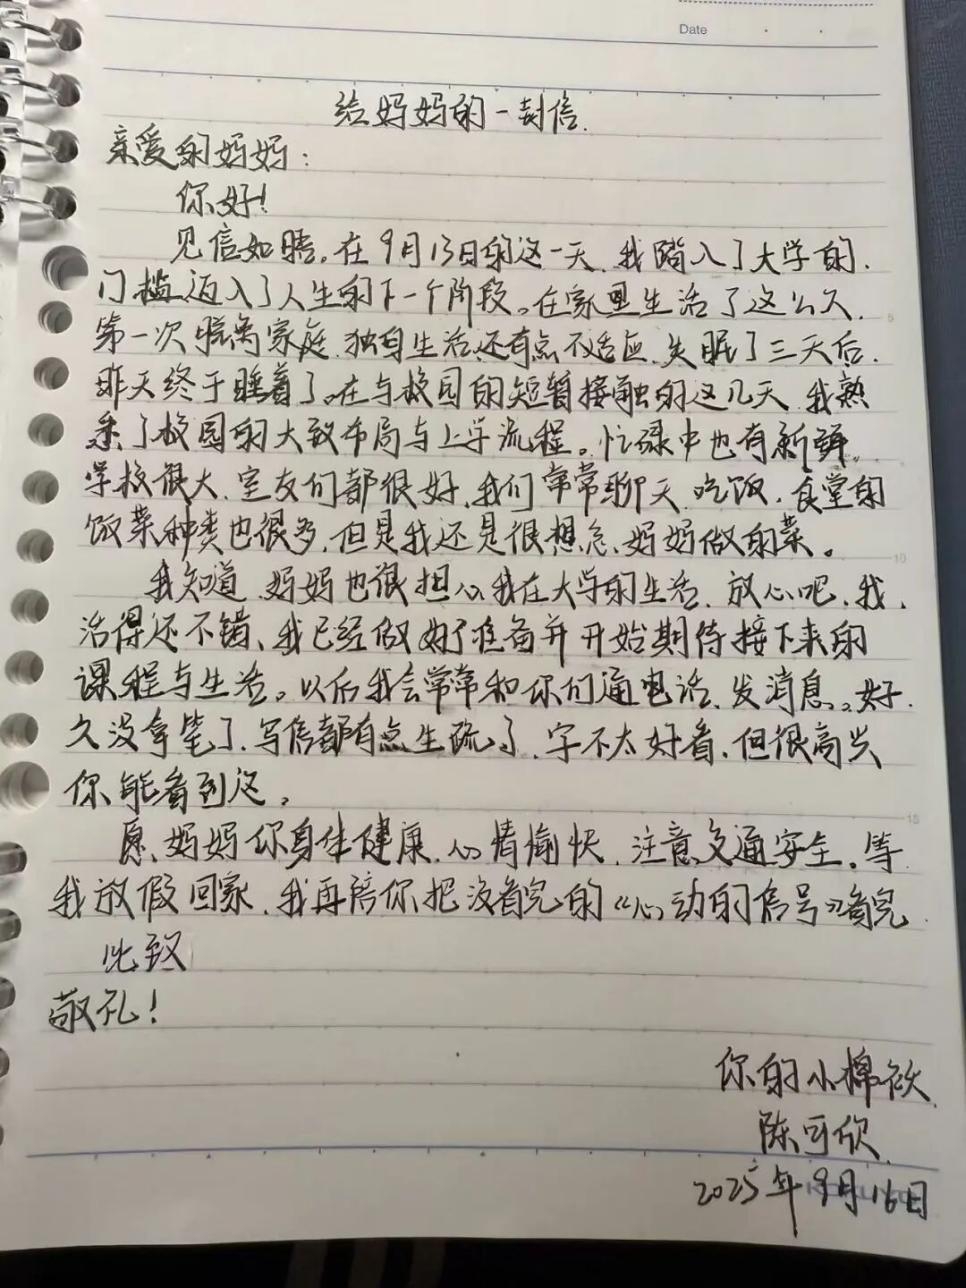 Date
给妈妈的一封信.
亲爱的妈妈：
你好！
见信如晤。在9月13日的这一天，我踏入了大学的
门槛迈入了人生的下一个阶段。在家里生活了这么久
第一次脱离家庭，独自生活还有点不适应，失眠了三天后，
昨天终于睡着了。在与校园的短暂接触的这几天，我熟
悉了校园的大致布局与上学流程。忙碌中也有新鲜。
学校很大，室友们都很好，我们常常聊天，吃饭，食堂的
饭菜种类也很多，但是我还是很想念，妈妈做的菜。
我知道，妈妈也很担心我在大学的生活，放心吧，我，
活得还不错、我已经做好了准备并开始期待接下来的
课程与生活。以后我会常常和你们通电话，发消息。好
久没拿笔了，写信都有点生疏了，字不太好看，但很高兴
你能看到这。
愿，妈妈你身体健康，心情愉快，注意交通安全。等
我放假回家，我再陪你把没看完的《心动的信号》看完
此致
敬礼！
你的小棉袄
陈可欣
2025年9月16日
5
10
15